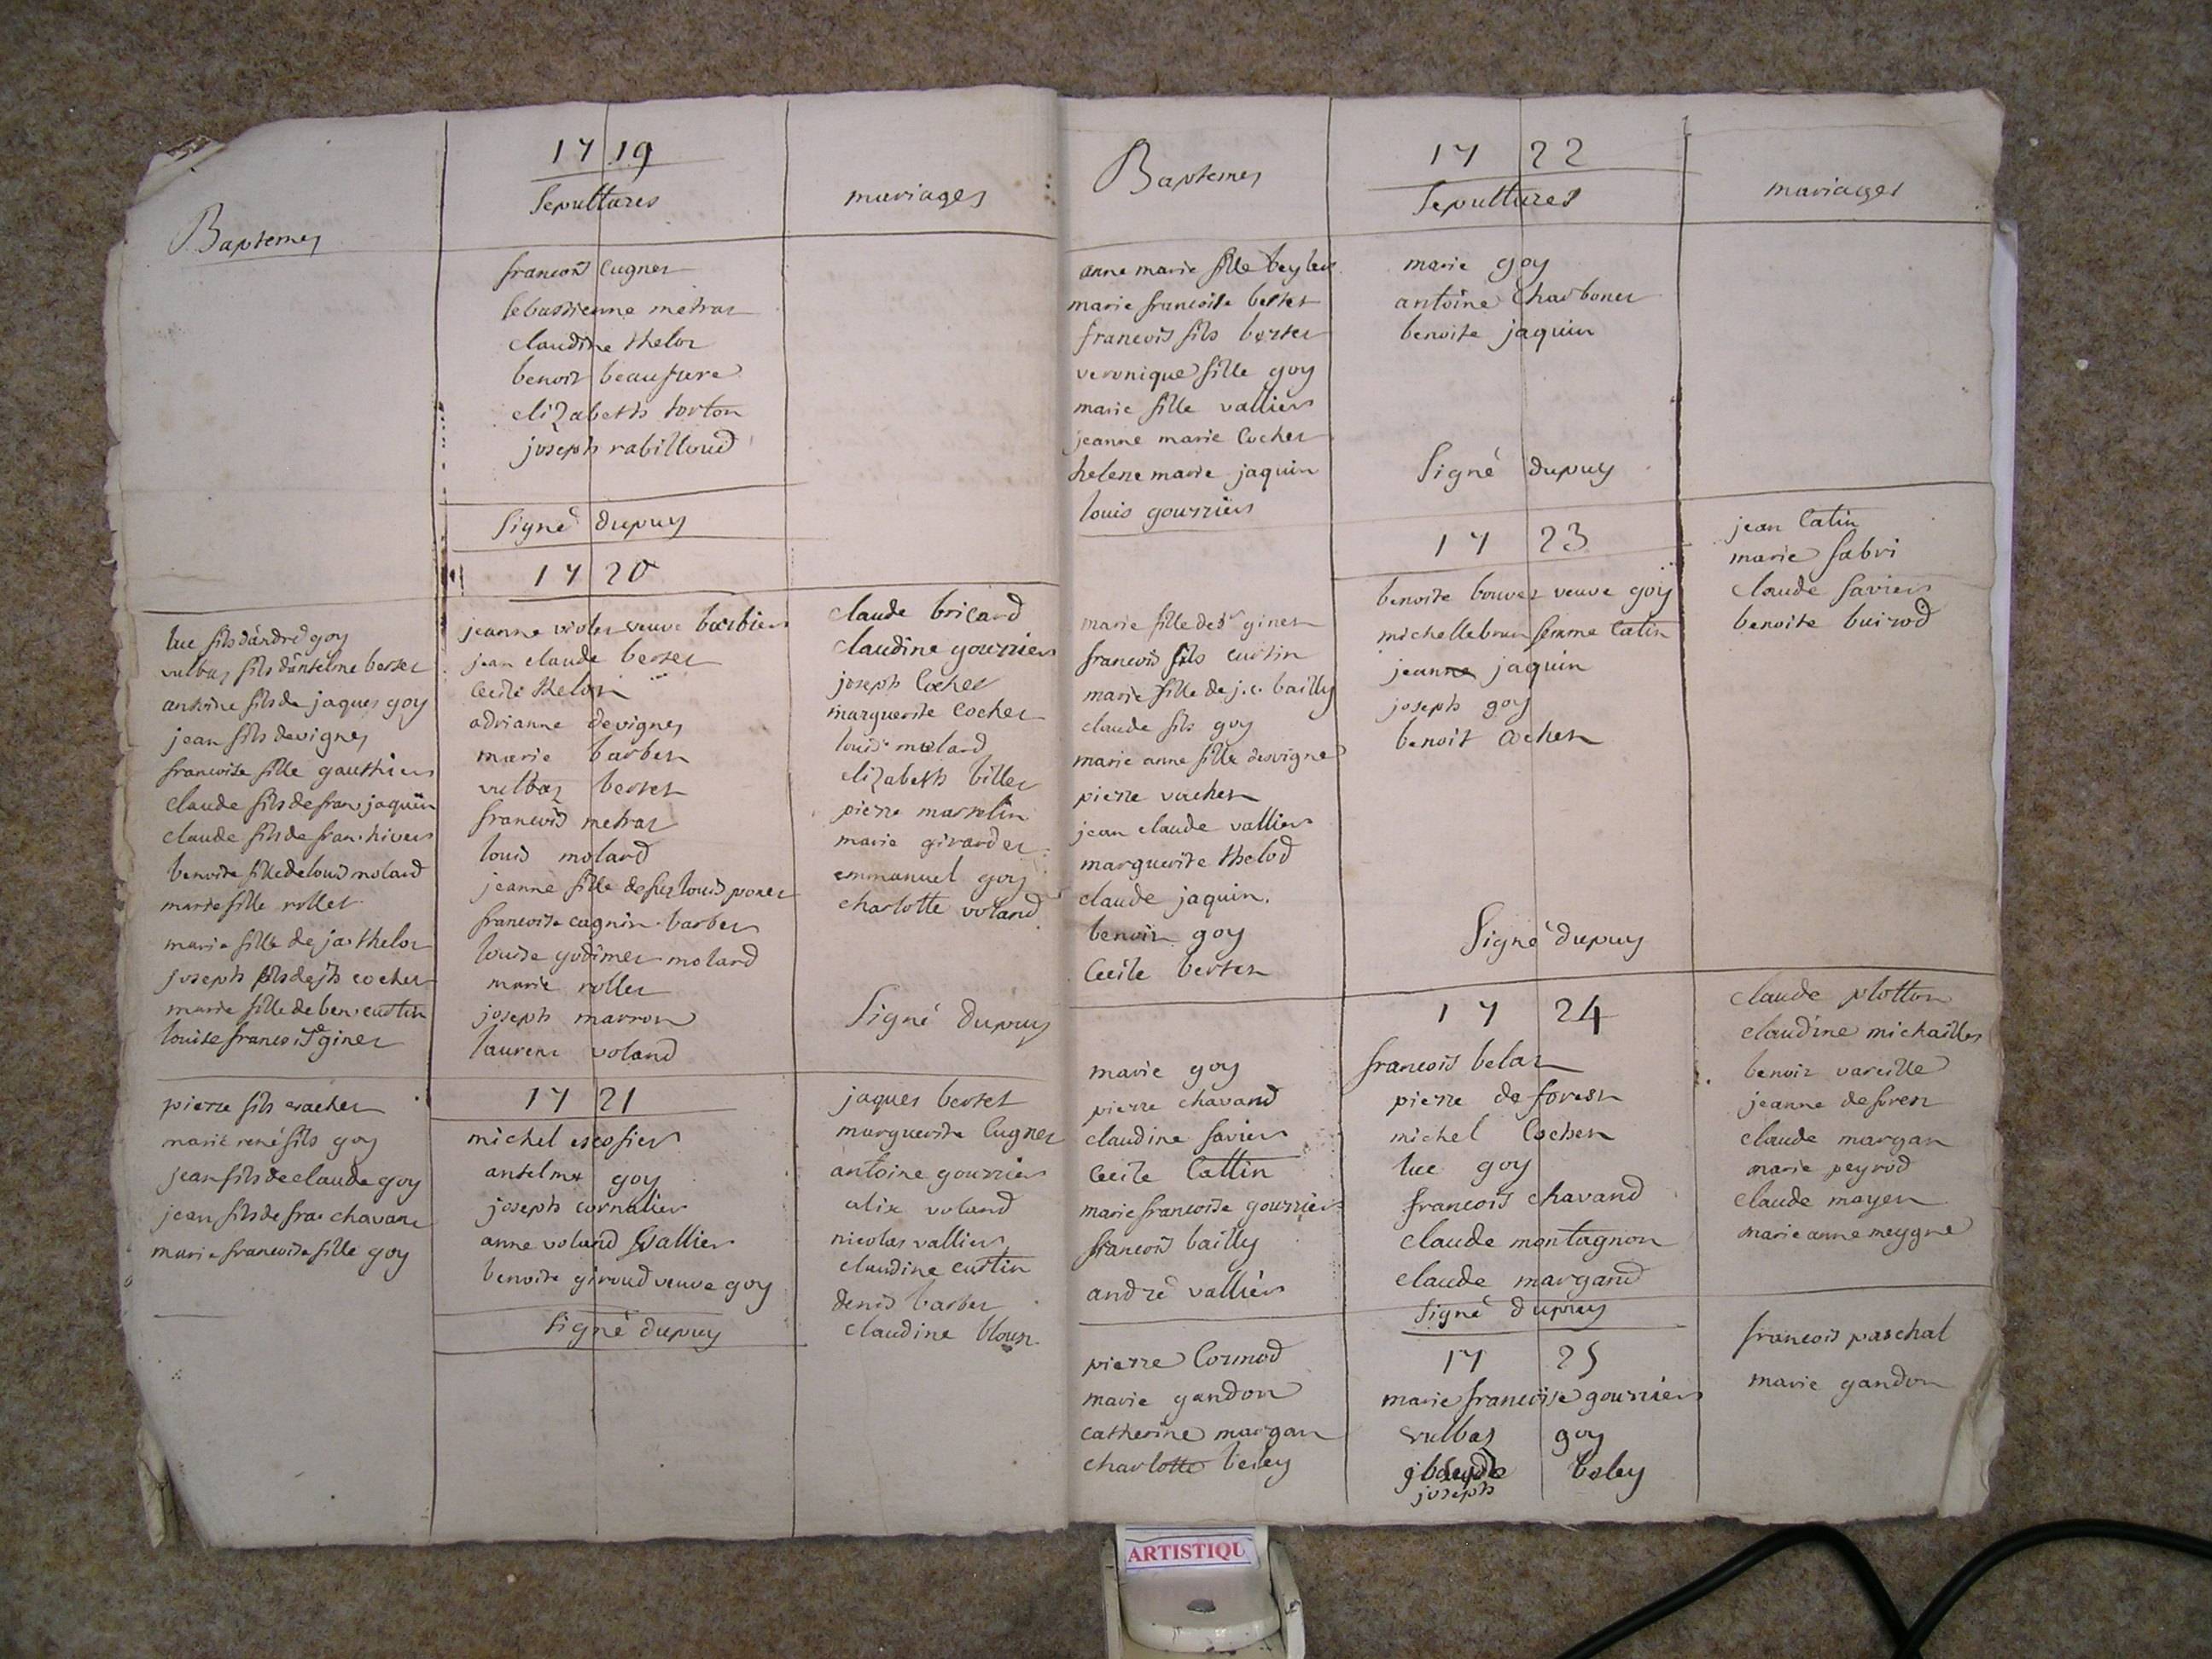 Baptemes
17 19
Sepultures
mariages
francois cugnet
sebastienne metras
claudine thelot
benoit beaufure
elizabeth torton
joseph rabilloud
signé dupuy
17 20
luc fils d'andré goy
vulbas fils d'antelme berset
antoine fils de jaques goy
jean fils devignes
francoise fille gauthier
claude fils de fran. jaquin
claude fils de fran. hivers
benoite fille de louis molard
marie fille rollet
marie fille de ja. thelot
joseph fils de jh cochet
marie fille de ben. curtin
louise francoise ginet
jeanne violet veuve barbier
jean claude berset
cecile thelot
adrianne devignes
marie barbet
vulbas berset
francois metras
louis molard
jeanne fille de feu louis
francoise cugnin barbet
louise godimet molard
marie rollet
joseph marron
laurent voland
claude bricard
claudine gourrier
joseph cochet
marguerite cochet
louis molard
elizabeth billet
pierre
marie girardet
emmanuel goy
charlotte voland
signé dupuy
pierre fils vachet
marie rené fils goy
jean fils de claude goy
jean fils de fra. chavant
marie francoise fille goy
17 21
michel escofier
antelme goy
joseph cornalier
anne voland vallier
benoite giroud veuve goy
signé dupuy
jaques berset
marguerite cugnet
antoine gourrier
alix voland
nicolas vallier
claudine curtin
denis barbet
claudine
Baptemes
17 22
Sepultures
mariages
anne marie fille beyley
marie francoise berset
francois fils berset
veronique fille goy
marie fille vallier
jeanne marie cochet
helene marie jaquin
louis gourrier
marie goy
antoine charbonet
benoite jaquin
signé dupuy
17 23
marie fille de sr ginet
francois fils curtin
marie fille de j. c. bailly
claude fils goy
marie anne fille desvigne
pierre vachet
jean claude vallier
marguerite thelod
claude jaquin.
benoit goy
cecile berset
benoite bouvet veuve goy
michelle brun femme catin
jeanne jaquin
joseph goy
benoit cochet
signé dupuy
jean catin
marie fabri
claude favier
benoite buirod
17 24
marie goy
pierre chavand
claudine favier
cecile cattin
marie francoise gourrier
francois bailly
andré vallier
francois belat
pierre de forest
michel cochet
luc goy
francois chavand
claude montagnon
claude margand
signé dupuy
claude plotton
claudine michaillet
benoit vareille
jeanne deforest
claude margan
marie peyrod
claude mayet
marie anne meygne
17 25
pierre cormod
marie gandon
catherine margan
charlotte beley
marie francoise gourrier
vulbas goy
beley
joseph
francois paschal
marie gandon
ARTISTIQU